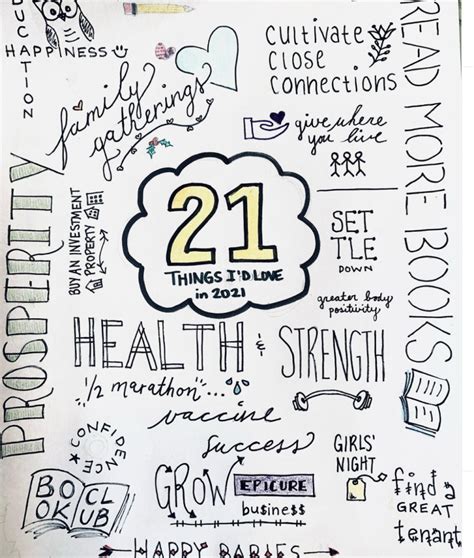 DUCTION
HAPPINESS
cultivate
close
connections
READ MORE BOOKS
family
gatherings
give where
you live
PROSPERITY
BUY AN INVESTMENT
PROPERTY
21
THINGS I'D LOVE
in 2021
SET
TLE
DOWN
greater body
positivity
HEALTH & STRENGTH
1/2 marathon...
vaccine
success
CONFIDENCE
BOOK
CLUB
GROW EPICURE
business
GIRLS'
NIGHT
find a
GREAT
tenant
HAPPY BABIES